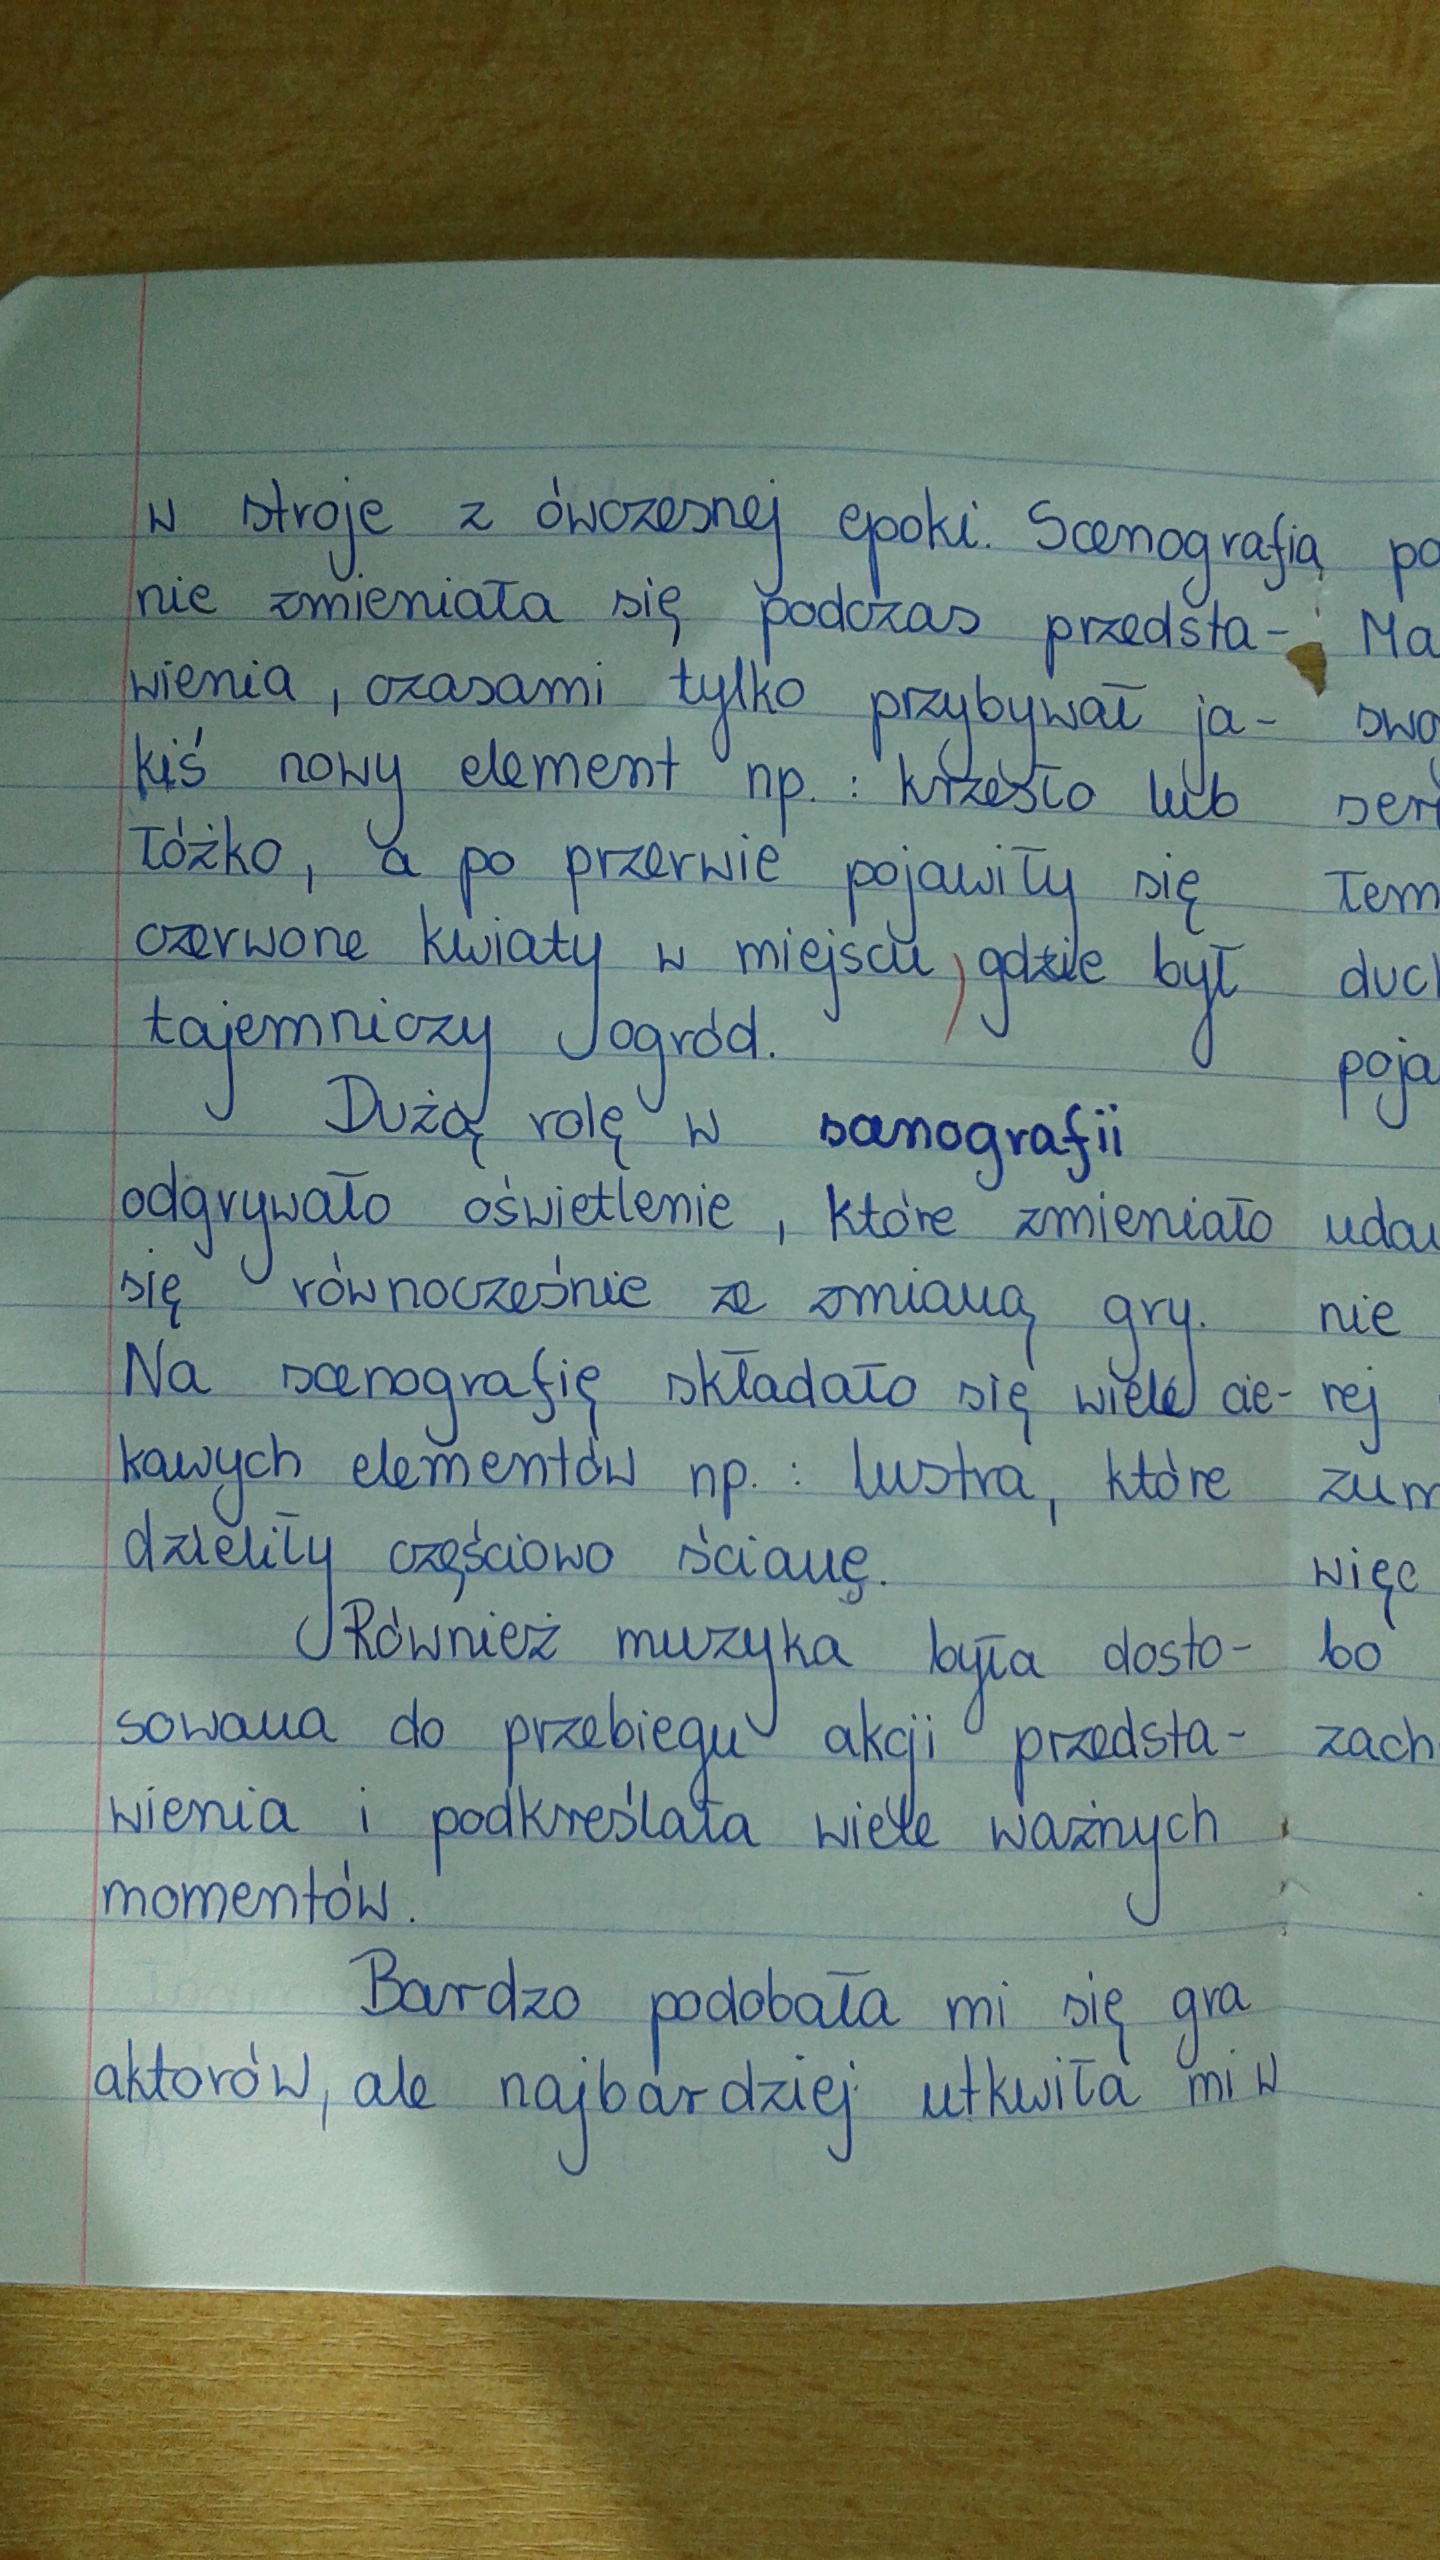 w stroje z ówczesnej epoki. Scenografia
nie zmieniała się podczas przedsta-
wienia, czasami tylko przybywał ja-
kiś nowy element np.: krzesło lub
łóżko, a po przerwie pojawiły się
czerwone kwiaty w miejscu, gdzie był
tajemniczy ogród.
Dużą rolę w scenografii
odgrywało oświetlenie, które zmieniało
się równocześnie ze zmianą gry.
Na scenografię składało się wiele cie-
kawych elementów np.: lustra, które
dzieliły częściowo ścianę.
Również muzyka była dosto-
sowana do przebiegu akcji przedsta-
wienia i podkreślała wiele ważnych
momentów.
Bardzo podobała mi się gra
aktorów, ale najbardziej utkwiła mi w
po
Ma
swo
ser
łem
duch
poja
udau
nie
rej
zum
więc
bo
zach